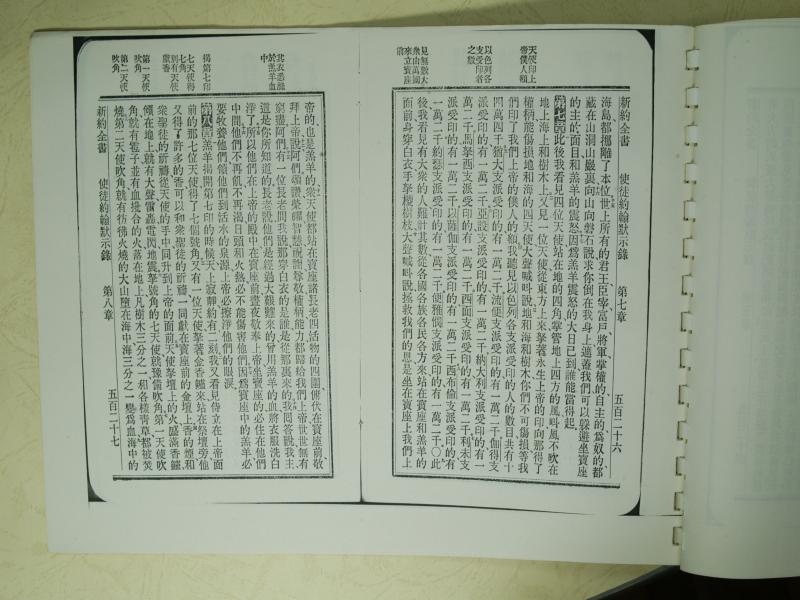 天使印上
帝僕人額
以色列各
支受印者
之數
見無數大
衆由萬國
來立寶座
前
新約全書　使徒約翰默示錄　第七章　五百二十六
海島都挪離了本位世上所有的君王臣宰富戶將軍掌權的自主的爲奴的都
藏在山洞山巖裏向山向磐石說求你倒在我身上遮蓋我們可以躱避坐寶座
的主的面目和羔羊的震怒因爲羔羊震怒的大日已到誰能當得起
第七章此後我看見四位天使站在地的四角掌管地上四方的風呌風不吹在
地上海上和樹木上又見一位天使從東方上來拏著永生上帝的印向那得了
權柄能傷損地和海的四天使大聲喊呌說地和海和樹木你們不可傷損等我
們印了我們上帝的僕人的額我聽見以色列各支派受印的人的數目共有十
四萬四千猶大支派受印的有一萬二千流便支派受印的有一萬二千伽得支
派受印的有一萬二千亞設支派受印的有一萬二千納大利支派受印的有一
萬二千馬拏西支派受印的有一萬二千西面支派受印的有一萬二千利未支
派受印的有一萬二千以薩伽支派受印的有一萬二千西布倫支派受印的有
一萬二千約瑟支派受印的有一萬二千便雅憫支派受印的有一萬二千〇此
後我看見有大衆的人難計其數從各國各族各民各方來站在寶座和羔羊的
面前身穿白衣手拏椶樹枝大聲喊呌說拯救我們的恩是坐在寶座上我們上
其衣悉滌
於羔羊血
中
揭第七印
七天使得
七角
別有天使
獻香
第一天使
吹角
第二天使
吹角
帝的也是羔羊的衆天使都站在寶座諸長老四活物的四圍俯伏在寶座前敬
拜上帝說阿們頌讚榮耀智慧祝謝尊敬權柄能力都歸給我們上帝世世無有
窮盡阿們有一位長老問我說那穿白衣的是誰是從那裏來的我回答說我主
這是你所知道的長老說他們是經過大艱難來的曾用羔羊的血將衣服洗白
淨了所以他們在上帝的寶座前晝夜在上帝的殿中敬奉上帝坐寶座的必住在他們
中間他們不再飢不再渴日頭和火熱必不能傷害他們因爲寶座中的羔羊必
要牧養他們領他們到活水的泉源上帝必擦淨他們的眼淚
第八章羔羊揭開第七印的時候天上寂靜約有二刻我又看見侍立在上帝面
前的那七位天使得了七個號角又有一位天使拏著金香鑪來站在祭壇旁他
又得了許多的香可以和衆聖徒的祈禱一同獻在寶座前的金壇上香的煙和
衆聖徒的祈禱從天使的手中同升到上帝的面前天使拏壇上的火盛滿香鑪
傾在地上就有大聲雷轟電閃地震拏號角的七天使就豫備吹角第一天使吹
角就有雹子並有血攙合的火落在地上凡樹木三分之一和各樣靑草都被焚
燒第二天使吹角就有彷彿火燒的大山墮在海中海三分之一變爲血海中的
新約全書　使徒約翰默示錄　第八章　五百二十七